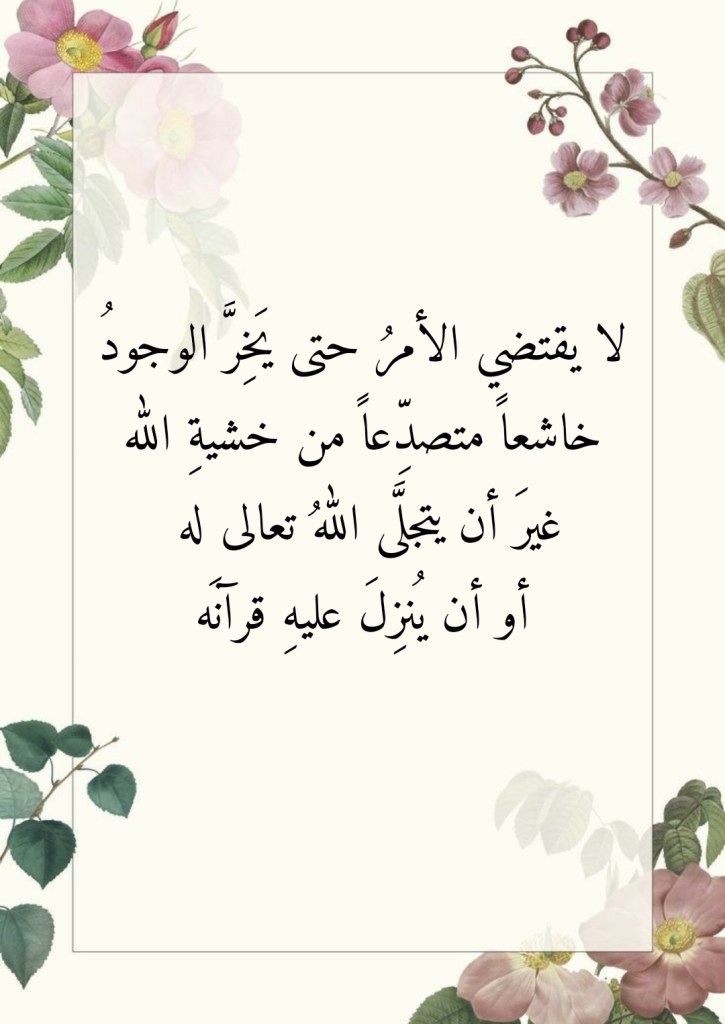 لا يقتضي الأمرُ حتى يَخِرَّ الوجودُ
خاشعاً متصدِّعاً من خشيةِ الله
غيرَ أن يتجلَّى اللهُ تعالى له
أو أن يُنزِلَ عليهِ قرآنَه